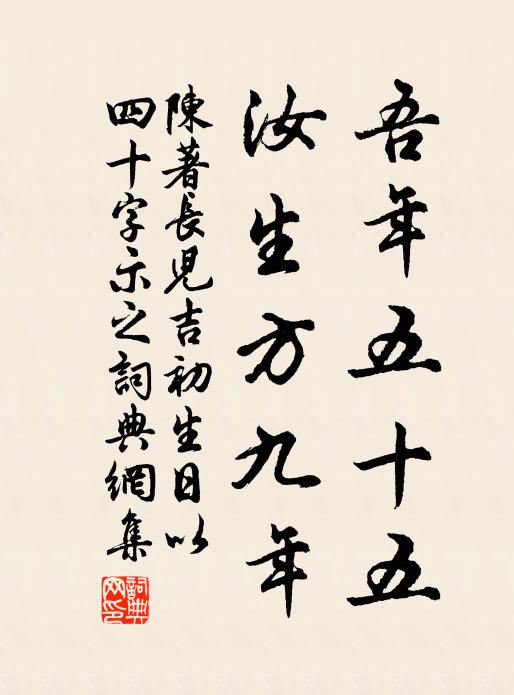 吾年五十五
汝生方九年
陳著長児吉初生日以
四十字示之詞典網集
詞典網印